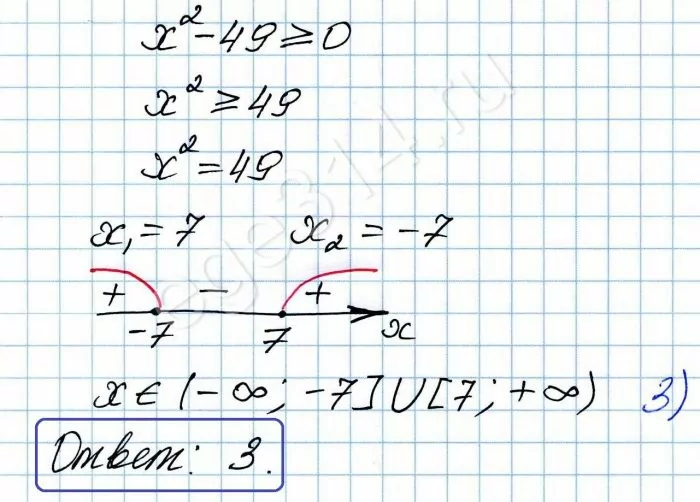 x² - 49 ≥ 0
x² ≥ 49
x² = 49
x₁ = 7 x₂ = -7
+ - +
-7 7 x
x ∈ (-∞; -7] ∪ [7; +∞) 3)
Ответ: 3.
ege314.ru